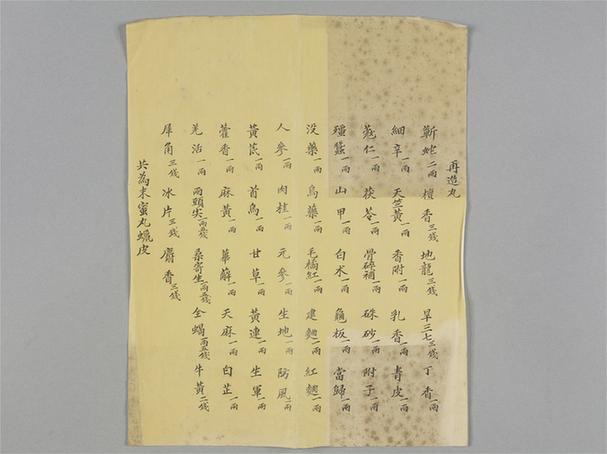 再造丸
蘄蛇二兩 檀香三錢 地龍三錢 旱三七三錢 丁香一兩
細辛一兩 天竺黃一兩 香附一兩 乳香一兩 青皮一兩
蔻仁一兩 茯苓一兩 骨碎補一兩 硃砂一兩 附子一兩
殭蠶一兩 山甲一兩 白朮一兩 龜板一兩 當歸一兩
沒藥一兩 烏藥一兩 毛橘紅一兩 建麯一兩 紅麯一兩
人參一兩 肉桂一兩 元參一兩 生地一兩 防風一兩
黃芪一兩 首烏一兩 甘草一兩 黃連一兩 生軍一兩
藿香一兩 麻黃一兩 萆薢一兩 天麻一兩 白芷一兩
羌活一兩 兩頭尖一兩五錢 桑寄生一兩五錢 全蝎一兩五錢 牛黃二錢
犀角三錢 冰片三錢 麝香三錢
共為末蜜丸蠟皮